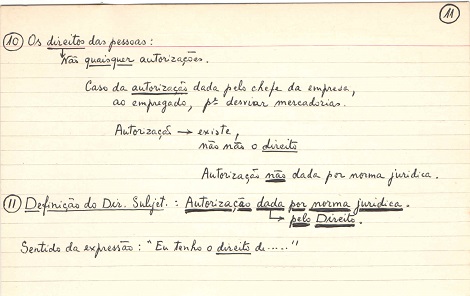 11
10 Os direitos das pessoas:
Não quaisquer autorizações.
Caso da autorização dada pelo chefe da empresa,
ao empregado, pª desviar mercadorias.
Autorização → existe,
não não o direito
Autorização não dada por norma jurídica.
11 Definição do Dir. Subjet.: Autorização dada por norma jurídica.
pelo Direito.
Sentido da expressão: "Eu tenho o direito de....."